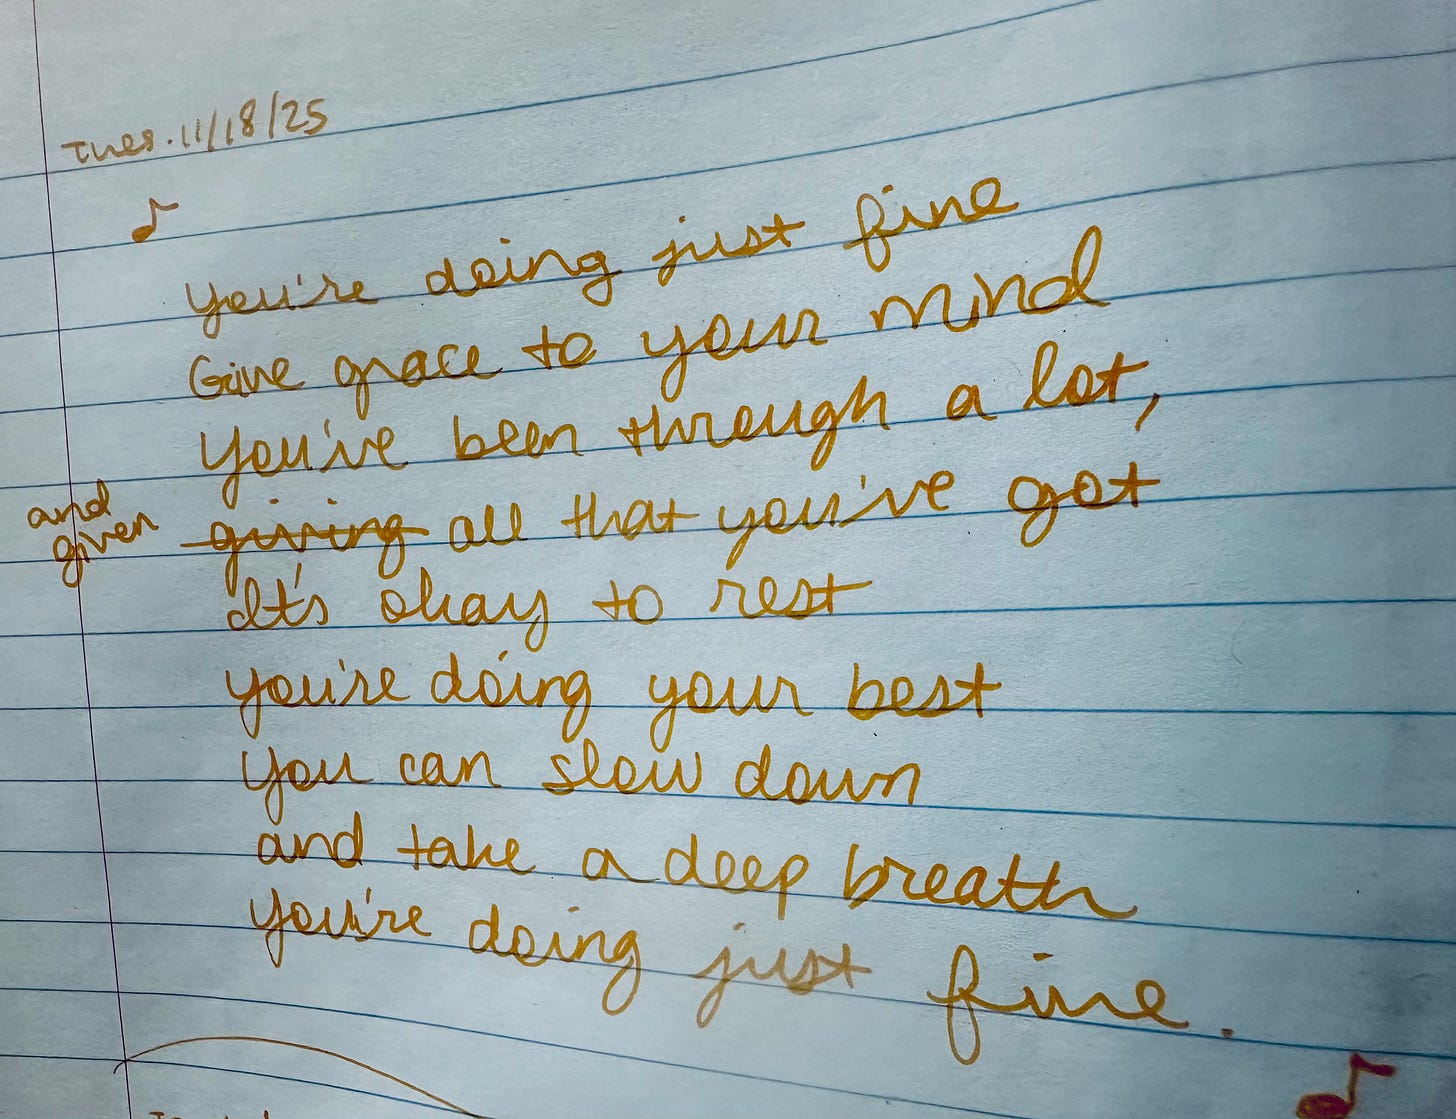 Tues. 11/18/25
You're doing just fine
Give grace to your mind
You've been through a lot,
and given
giving all that you've got
It's okay to rest
you're doing your best
You can slow down
and take a deep breath
You're doing just fine.